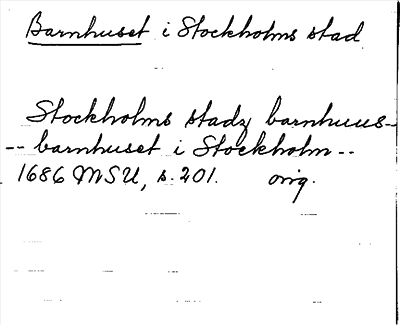 Barnhuset i Stockholms stad
Stockholms stadz barnhuus--
-- barnhuset i Stockholm --
1686 MSU, s. 201. orig.